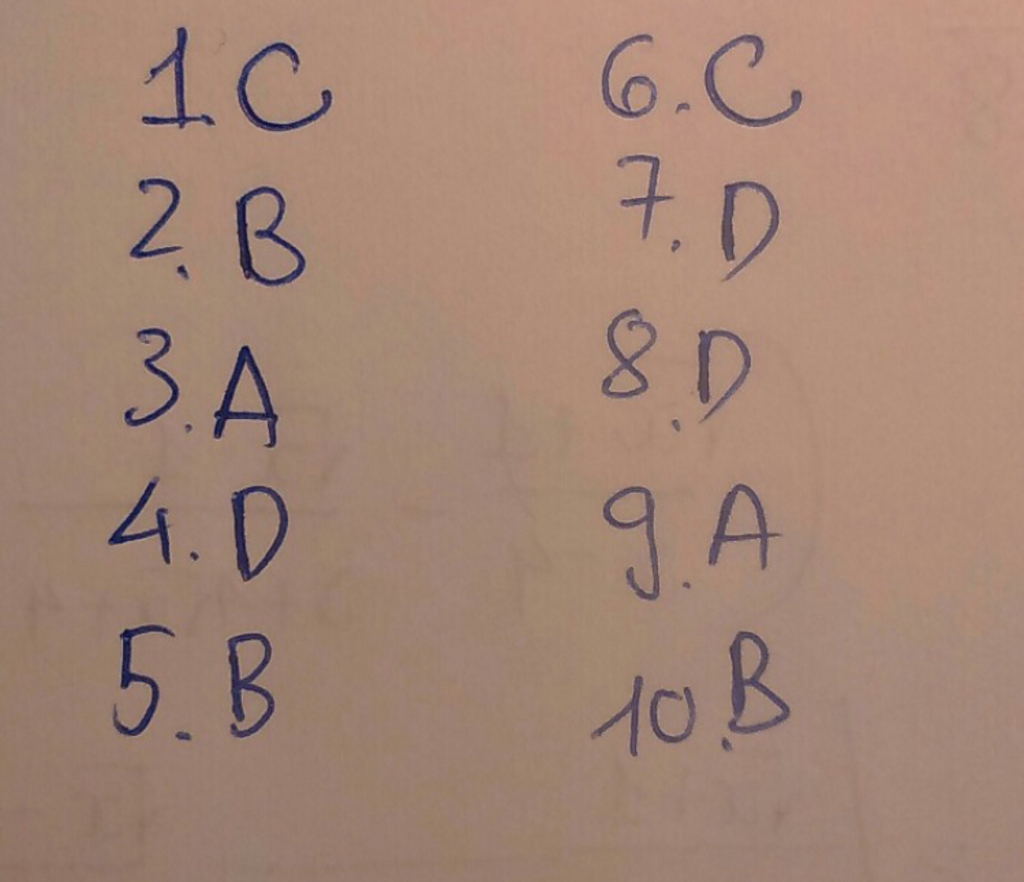 1. C
2. B
3. A
4. D
5. B
6. C
7. D
8. D
9. A
10. B